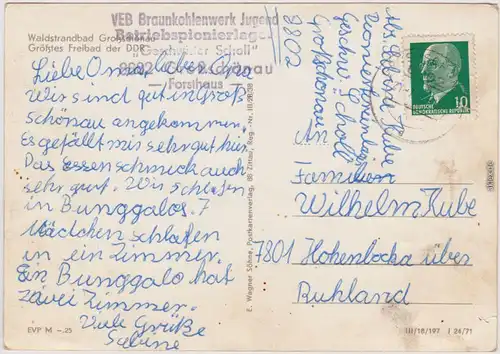 Waldstrandbad Großschönau
Größtes Freibad der DDR
VEB Braunkohlenwerk Jugend
Betriebspionierlager
"Geschwister Scholl"
8802 Großschönau
Forsthaus
Liebe Oma, lieber Opa
Wir sind gut in Groß
schönau angekommen.
Es gefällt mir sehr gut hier.
Das Essen schmeckt auch
sehr gut. Wir schlafen
in Bunggalos. 7
Mädchen schlafen
in ein Zimmer.
Ein Bunggalo hat
zwei Zimmer.
Viele Grüße
Sabine
EVP M –.25
E. Wagner Söhne, Postkartenverlag, 88 Zittau, Reg.-Nr. III/28/28
Abs. Sabine Kube
Geschw. Scholl
Großschönau
8802
DEUTSCHE
DEMOKRATISCHE REPUBLIK
10
An
Familie
Wilhelm Kube
7801 Hohenbocka über
Ruhland
III/18/197 I 24/71